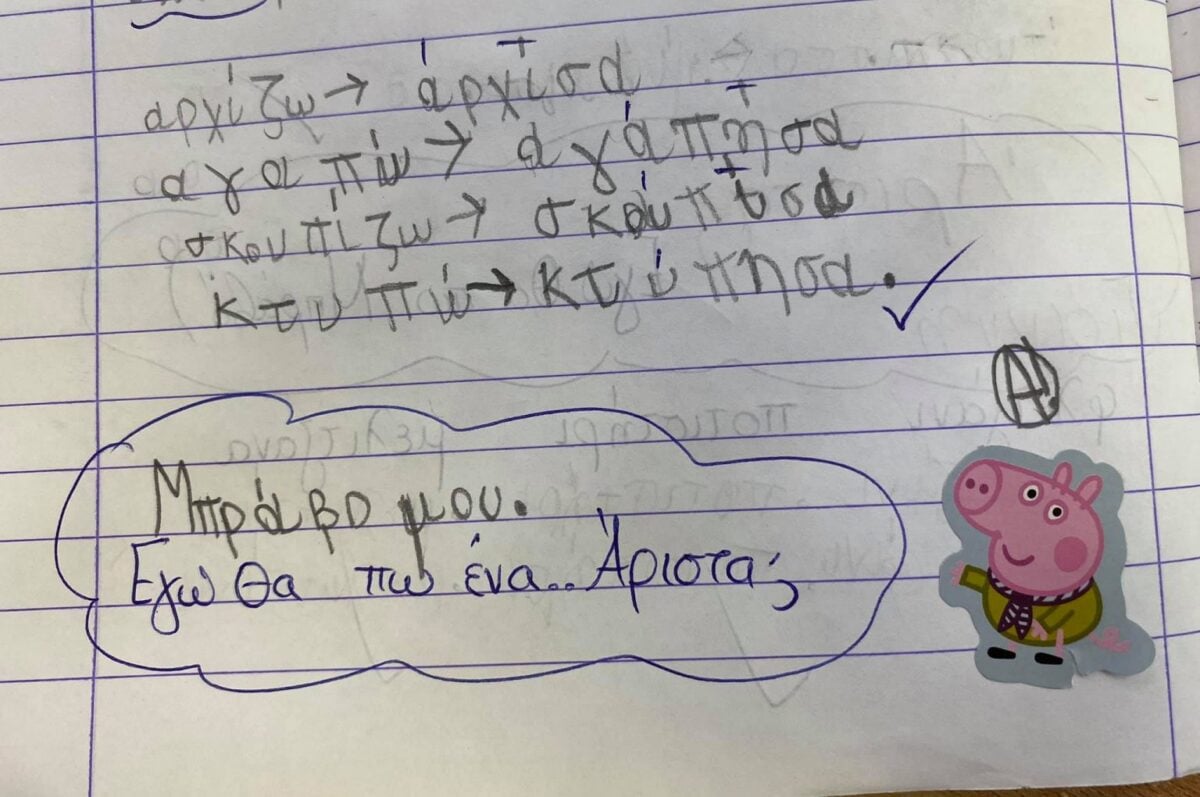 αρχίζω → άρχισα
αγαπώ → αγάπησα
σκουπίζω → σκούπισα
κτυπώ → κτύπησα.
Α!
Μπράβο μου.
Εγώ θα πω ένα.. Άριστα;